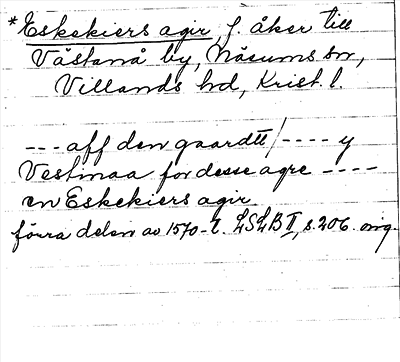 *Eskekiers agir, f. åker till
Västanå by, Näsums sn,
Villands hd, Krist. l.
--- aff den gaardtt/---- y
Vestnaa for desse agre ----
en Eskekiers agir
förra delen av 1570-t. LSLB II, s. 206. orig.